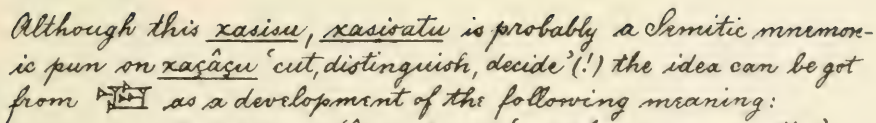 Although this xasisu, xasisatu is probably a Semitic mnemon-
ic pun on xaçâçu 'cut, distinguish, decide' (!) the idea can be got
from as a development of the following meaning: